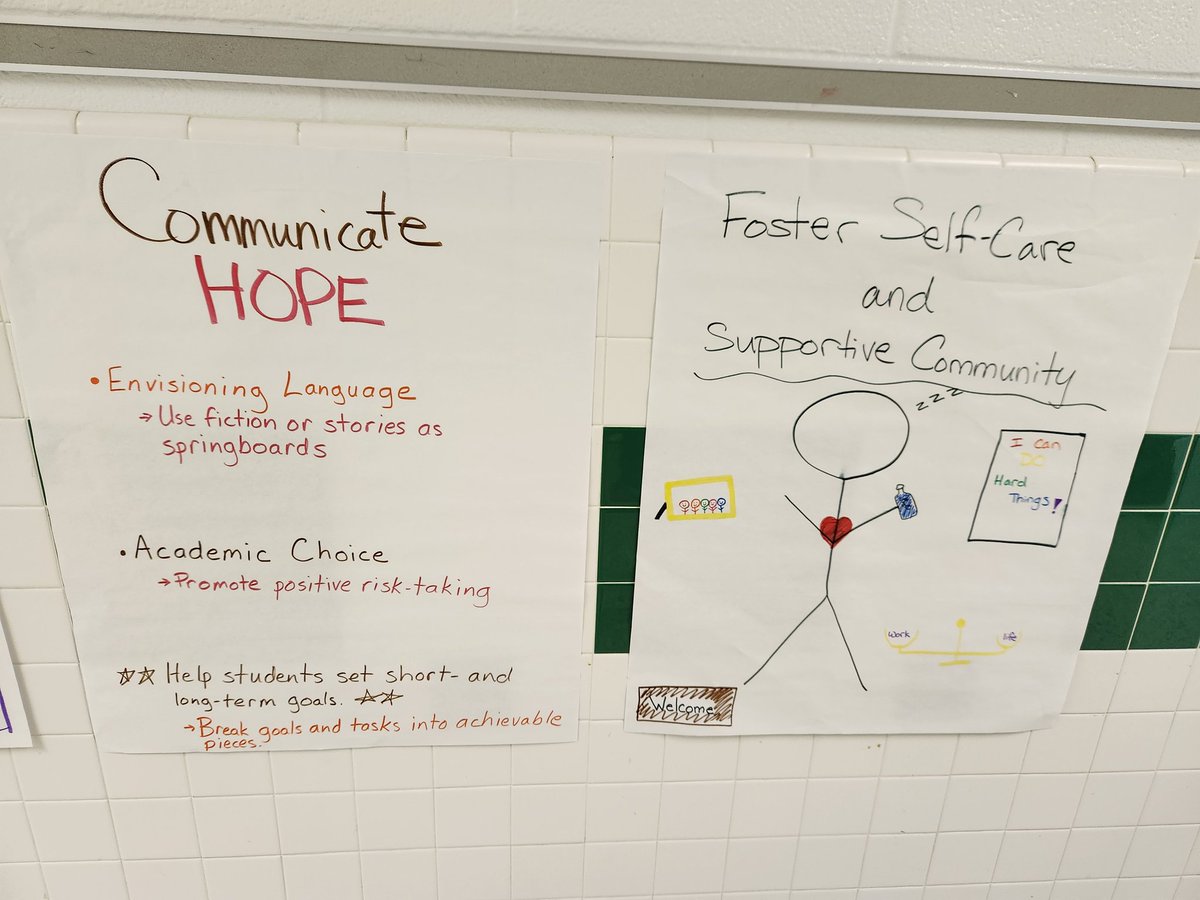 Communicate
HOPE
• Envisioning Language
→ Use fiction or stories as
springboards
• Academic Choice
→ Promote positive risk-taking
☆☆ Help students set short- and
long-term goals. ☆☆
→ Break goals and tasks into achievable
pieces.
Foster Self-Care
and
Supportive Community
z z z
I can
DO
Hard
Things!
work
life
Welcome